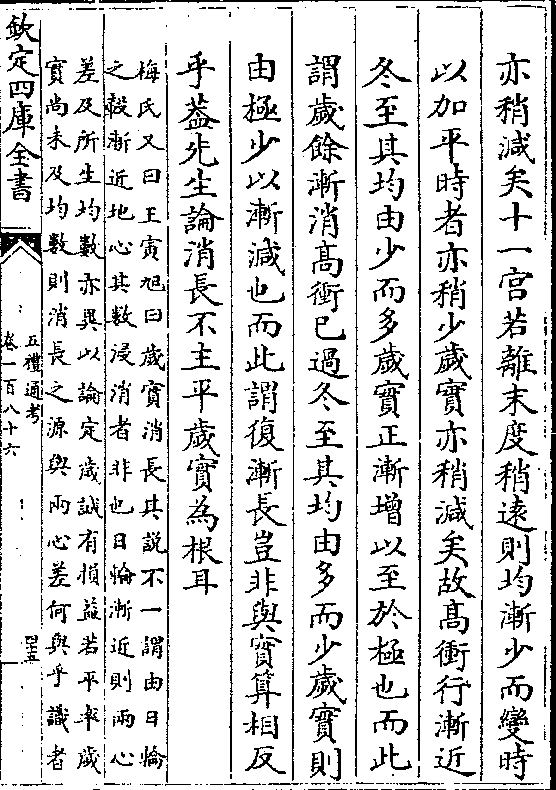 亦稍減矣十一宫若離末度稍遠則均漸少而變時
以加平時者亦稍少歲實亦稍減矣故髙衝行漸近
冬至其均由少而多歲實正漸增以至於極也而此
謂歲餘漸消髙衝已過冬至其均由多而少歲實則
由極少以漸減也而此謂復漸長豈非與實算相反
乎葢先生論消長不主平歲實為根耳
梅氏又曰王寅旭曰歲實消長其說不一謂由日輪
之轂漸近地心其數浸消者非也日輪漸近則兩心
差及所生均數亦異以論定歲誠有損益若平率歲
實尚未及均數則消長之源與兩心差何與乎識者
欽定四庫全書
五禮通考
卷一百八十六